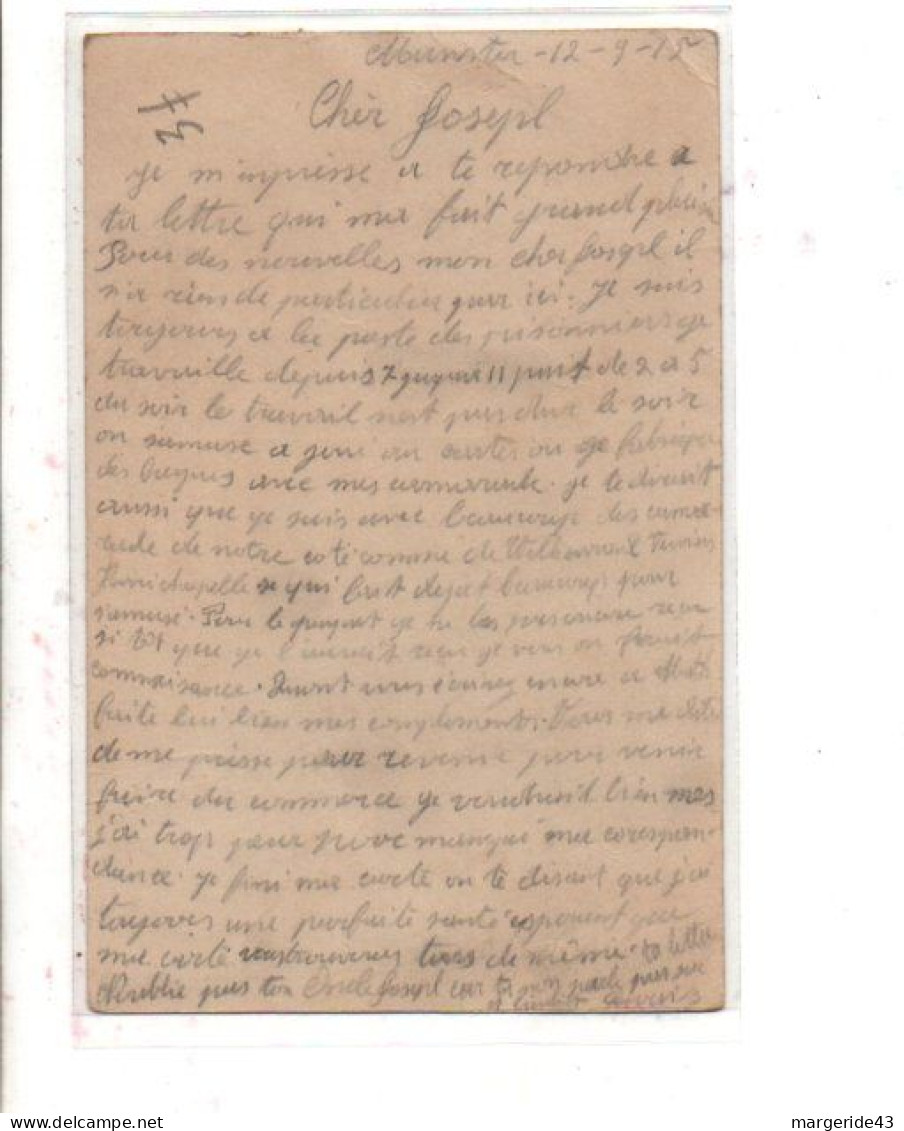 Munster - 12 - 9 - 15
37
Cher Josepl
Je m'inpresse a te repondre a
ta lettre qui ma fait grand plaisir
Pour des nouvelles mon cher Josepl il
n'a rien de particulier par ici. Je suis
toujours a la poste des prisonniers je
travaille depuis 7 jusque 11 puit de 2 a 5
du soir le travail nest pas dur le soir
on samuse a joué au cartes ou je fabrique
des bagues avec mes camarade. je te dirait
aussi que je suis avec beaucoup des cama-
rade de notre coté comme de
chapelle se qui fait dejat beaucoup pour
samusé. Pour le paquet je ne les pas encore recu
si tot que je l'aurait recu je vous en ferait
connaisance. Quant vous écrirez encore a
faite lui bien mes complements. Vous me dite
de me presse pour revenir pour venir
faire du commerce je voudrait bien mes
j'ai trop peur
dance. Je fini ma carte en te disant que j'ai
toujours une parfaite santé esperent que
ma carte vous trouveras tous de même. ta lettre
N'oublie pas ton Oncle Josepl car tu